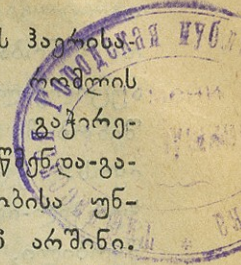 ს ჰაერისა-
რომლის
გაჭირე-
წმენდა-გა-
ობისა უნ-
ნ არშინი.
ГОРОДСКАЯ ПУБЛ